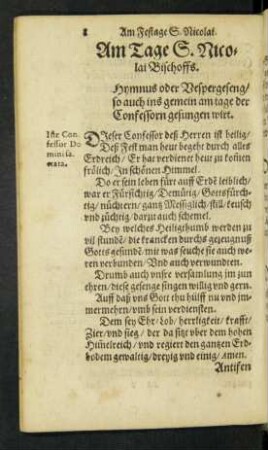 2 Am Festage S. Nicolai.
Am Tage S. Nico-
lai Bischoffs.
Hymnus oder Vespergeseng/
so auch ins gemein am tage der
Confessorn gesungen wirt.
Iste Con
fessor Do
mini sa
DIeser Confessor deß Herren ist heilig/
Deß Fest man heur begeht durch alles
Erdreich/ Er hat verdienet heut zu komen
frölich/ In schönen Himmel.
Do er sein leben fürt auff Erdē leiblich/
war er Fürsichtig/ Demütig/ Gottsfürch-
tig/ nüchtern/ gantz Messiglich/ still/ keusch
vnd züchtig/ darzu auch schemel.
Bey welches Heiligthumb werden zu
vil stundē/ die krancken durchs gezeugnuß
Gotts gesundē/ mit was seuche sie auch wo-
ren verbunden/ Vnd auch verwundten.
Drumb auch vnsre versamlung im zun
ehren/ diese gesenge singen willig vnd gern.
Auff daß vns Gott thu hülff nu vnd jm-
mermehren/ vmb sein verdiensten.
Dem sey Ehr/ Lob/ herrligkeit/ krafft/
Zier/ vnd sieg/ der da sitzt vber dem hohen
Him̄elreich/ vnd regiert den gantzen Erd-
bodem gewaltig/ dreyig vnd einig/ Amen.
Antifen